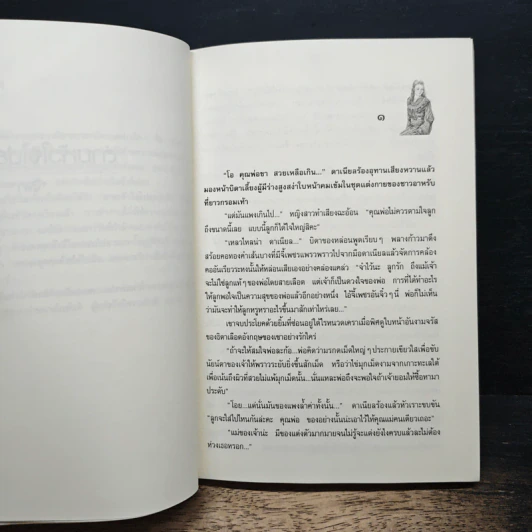 ๑
"โอ คุณพ่อขา สวยเหลือเกิน..." ดาเนียลร้องอุทานเสียงหวานแล้ว
มองหน้าบิดาเลี้ยงผู้มีร่างสูงสง่าใบหน้าคมเข้มในชุดแต่งกายของชาวอาหรับ
ที่ยาวกรอมเท้า
"แต่มันแพงเกินไป..." หญิงสาวทำเสียงฉะอ้อน "คุณพ่อไม่ควรตามใจลูก
ถึงขนาดนี้เลย แบบนี้ลูกก็ได้ใจใหญ่สิคะ"
"เหลวไหลน่า ดาเนียล..." บิดาของหล่อนพูดเรียบๆ พลางก้าวมาดึง
สร้อยคอทองคำเส้นบางที่มีจี้เพชรแพรวพราวไปจากมือดาเนียลแล้วจัดการคล้อง
คออันเรียวระหงนั้นให้หล่อนเสียเองอย่างคล่องแคล่ว "จำไว้นะ ลูกรัก ถึงแม้เจ้า
จะไม่ใช่ลูกแท้ๆของพ่อโดยสายเลือด แต่เจ้าก็เป็นดวงใจของพ่อ การที่ได้ทำอะไร
ให้ลูกพอใจเป็นความสุขของพ่อแล้วอีกอย่างหนึ่ง ไอ้จี้เพชรอันจิ๋วๆนี่ พ่อก็ไม่เห็น
ว่ามันจะทำให้ลูกหรูหราอะไรขึ้นมาสักเท่าไหร่เลย..."
เขาจบประโยคด้วยยิ้มที่ซ่อนอยู่ใต้ไรหนวดเคราเมื่อพิศดูใบหน้าอันงามจรัส
ของธิดาเลือดอังกฤษของเขาอย่างรักใคร่
"ถ้าจะให้สมใจพ่อละก้อ...พ่อคิดว่ามรกตเม็ดใหญ่ๆประกายเขียวใสเพื่อขับ
นัยน์ตาของเจ้าให้พราวระยับยิ่งขึ้นสักเม็ด หรือว่าไข่มุกเม็ดงามจากเกาะทะเลใต้
เพื่อเน้นถึงผิวที่สวยไม่แพ้มุกเม็ดนั้น...นั่นแหละพ่อถึงจะพอใจถ้าเจ้ายอมให้ซื้อหามา
ประดับ"
"โอย...แต่นั่นมันของแพงล้ำค่าทั้งนั้น..." ดาเนียลร้องแล้วหัวเราะขบขัน
"ลูกจะใส่ไปไหนกันล่ะคะ คุณพ่อ ของอย่างนั้นน่ะเอาไว้ให้คุณแม่คนเดียวเถอะ"
"แม่ของเจ้าน่ะ มีของแต่งตัวมากมายจนไม่รู้จะแต่งยังไงครบแล้วละไม่ต้อง
ห่วงเธอหรอก..."